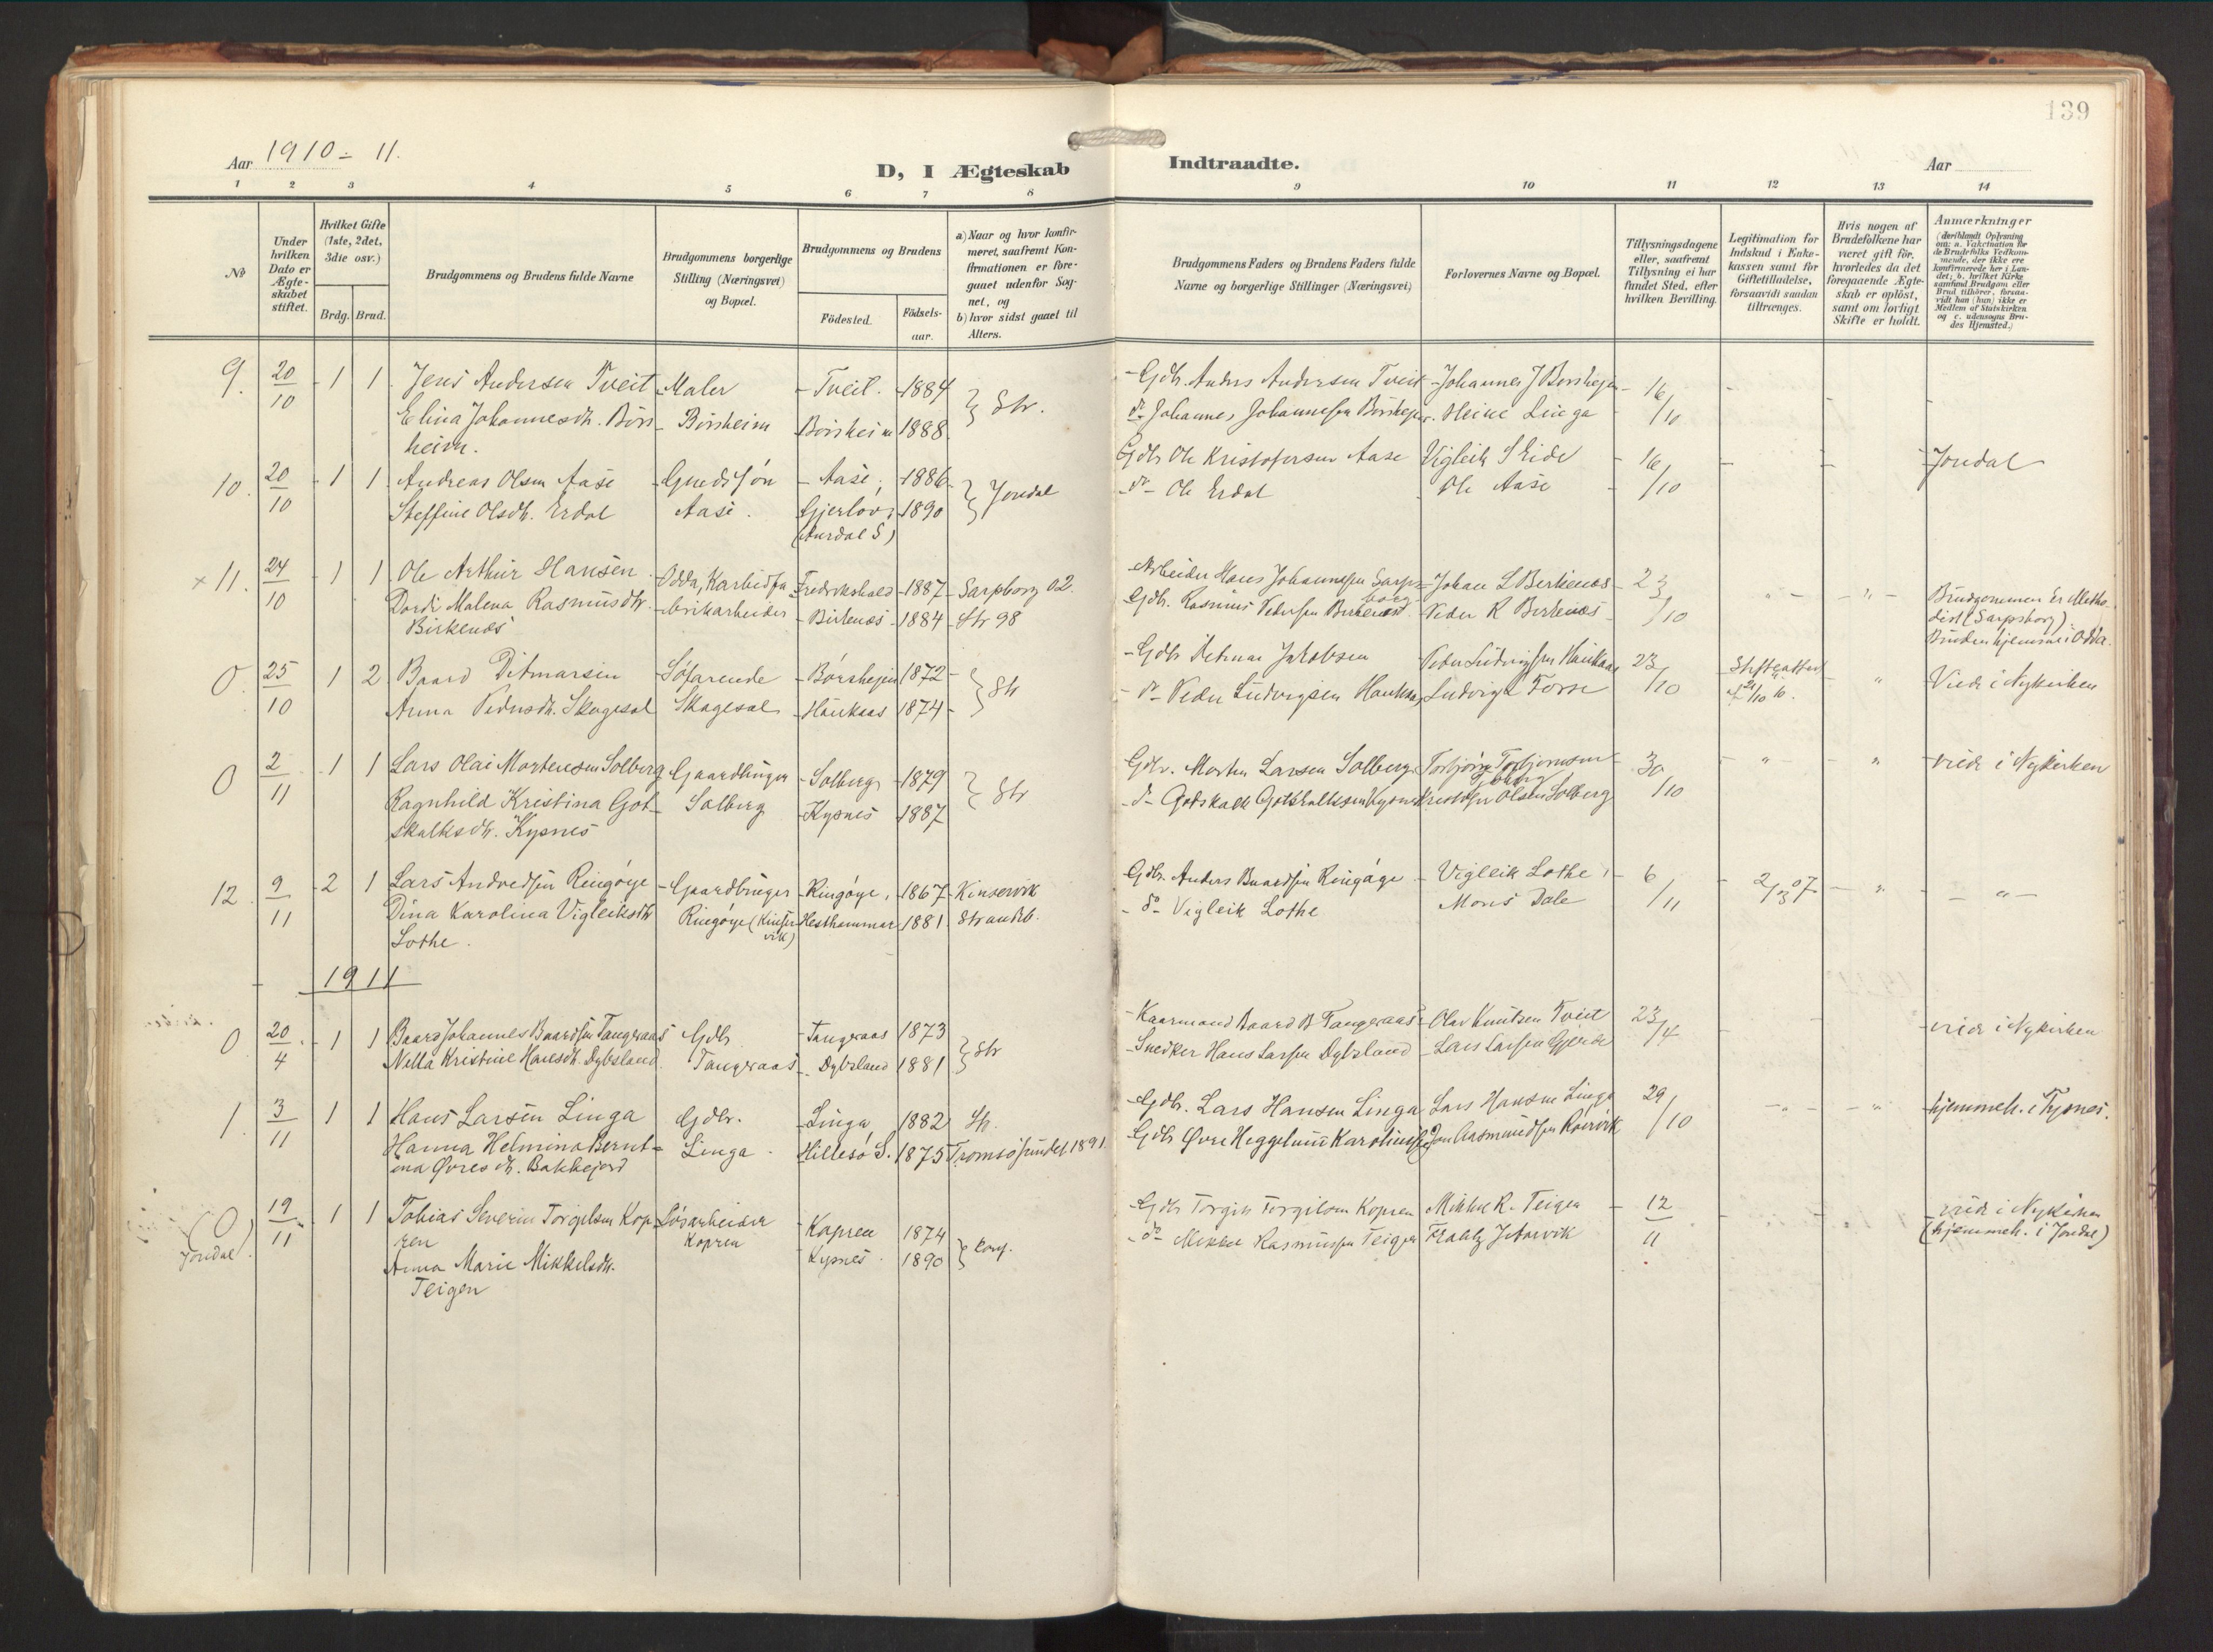 139
Aar 1910 = 11.
D, I Ægteskab
Indtraadte.
Aar
1 2 3 4 5 6 7 8 9 10 11 12 13 14
№
Under hvilken Dato er Ægteskabet stiftet.
Hvilket Gifte (1ste, 2det, 3die osv.)
Brdg. Brud.
Brudgommens og Brudens fulde Navne
Brudgommens borgerlige Stilling (Næringsvei) og Bopæl.
Brudgommens og Brudens
Födested.
Födselsaar.
a) Naar og hvor konfirmeret, saafremt Konfirmationen er foregaaet udenfor Sognet, og
b) hvor sidst gaaet til Alters.
Brudgommens Faders og Brudens Faders fulde Navne og borgerlige Stillinger (Næringsvei)
Forlovernes Navne og Bopæl.
Tillysningsdagene eller, saafremt Tillysning ei har fundet Sted, efter hvilken Bevilling.
Legitimation for Indskud i Enkekassen samt for Giftetilladelse, forsaavidt saadan tiltrænges.
Hvis nogen af Brudefolkene har været gift för, hvorledes da det foregaaende Ægteskab er oplöst, samt om lovligt Skifte er holdt.
Anmærkninger
(deriblandt Oplysning om: a. Vakcination for de Brudefolks Vedkommende, der ikke ere konfirmerede her i Landet; b. hvilket Kirkesamfund Brudgom eller Brud tilhörer, forsaavidt han (hun) ikke er Medlem af Statskirken og c. udensogns Brudes Hjemsted.)
9. 20/10 1 1 Jens Andersen Tveit - Maler - Tveit. - 1884 } Str. - Gdb. Anders Andersen Tveit - Johannes J Børshejm - 16/10
Elina Johannesdtr. Børs - Børsheim Børsheim 1888 do Johannes Johannessen Børshejm. Heine Linga
heim.
10. 20/10 1 1 Andreas Olsen Aase - Gaardsøn - Aase, - 1886 } Jondal Gdb Ole Kristofersen Aase Vigleik S Eide - 16/10 Jondal
Steffine Olsdtr. Erdal Aase. - 1890 - do - Ole Erdal Ole Aase
(Aurdal S)
× 11. 24/10 1 1 Ole Arthur Hansen Odda, Karbidfa- Fredrikshald - 1887 - Sarpsborg 02. Arbeider Hans Johannessen Sarpsborg - Johan L Berkenes - 23/10
Dordi Malena Rasmusdtr. brikarbeider - Birkenes - 1884 - Str 98 Gdb. Rasmus Pedersen Birkenes Peder R Berkenes
Birkenes
Brudgommen er Metho-
dist (Sarpsborg)
Bruden hjemme i Odda.
0. 25/10 1 2 Baard Ditmarsen - Søfarende - Børshejm 1872 - } Str - Gdb Ditmar Jakobsen Peder Ludvigsen Haukaas 23/10 Skifteattest Viede i Nykirken
Anna Pedersdtr. Skogesal Skagesal - Haukaas 1874 - - do Peder Ludvigsen Haukaas Ludvig L Torse 21/10 10.
0 2/11 1 1 Lars Olai Mortensen Solberg - Gaardbruger - Solberg - 1879 } Str Gdb. Morten Larsen Solberg Torbjørn Torbjørnsen 30/10 - viede i Nykirken
Ragnhild Kristina Got- Solberg - Kysnes - 1887 do Godskalk Gotskalksen Kysnes Kristofer Olsen Solberg
skalksdtr. Kysnes
12. 9/11 2 1 Lars Andreassen Ringøye - Gaardbruger - Ringøye, - 1867 - Kinservik Gdb. Anders Baardsen Ringøye - Vigleik Lothe - 6/11 2/3 07
Dina Karolina Vigleiksdtr Ringøye (Kinser- Hesthammar 1881 Strandeb. - do - Vigleik Lothe Mons Dale
Lothe. vik)
1911
0 20/4 1 1 Baard Johannes Baardsen Tangeraas Gdb - Tangeraas 1873 } Str - Kaarmand Baard B Tangeraas - Olav Knutsen Tveit 23/4 viede i Nykirken
Nella Kristine Hansdtr. Dybsland. Tangeraas - Dybsland 1881 - Snedker Hans Larsen Dybsland - Lars Larsen Gjerde
1. 3/11 1 1 Hans Larsen Linga Gdbr. - Linga 1882 Str. - Gdbr. Lars Hansen Linga Lars Hansen Linga 29/10 hjemmeh. i Tysnes.
Hanna Helmina Bernt- Linga Hillesø S. 1875 Tromsøsundet 1891. Gdb Øvre Heggelund Karoliussen Jon Aasmundsen Røirvik
ina Øvresdtr. Bakkejord
(0) 19/11 1 1 Tobias Severin Torgilsen Kop- Løsarbeider - Kopren 1874 } Gdb Torgils Torgilsen Kopren Mikkel R. Teigen - 12/11 viede i Nykirken
Jondal. ren Kopren Kysnes 1890 - do Mikkel Rasmussen Teigen Frantz J Aarvik (hjemmeh. i Jondal)
Anna Marie Mikkelsdtr.
Teigen